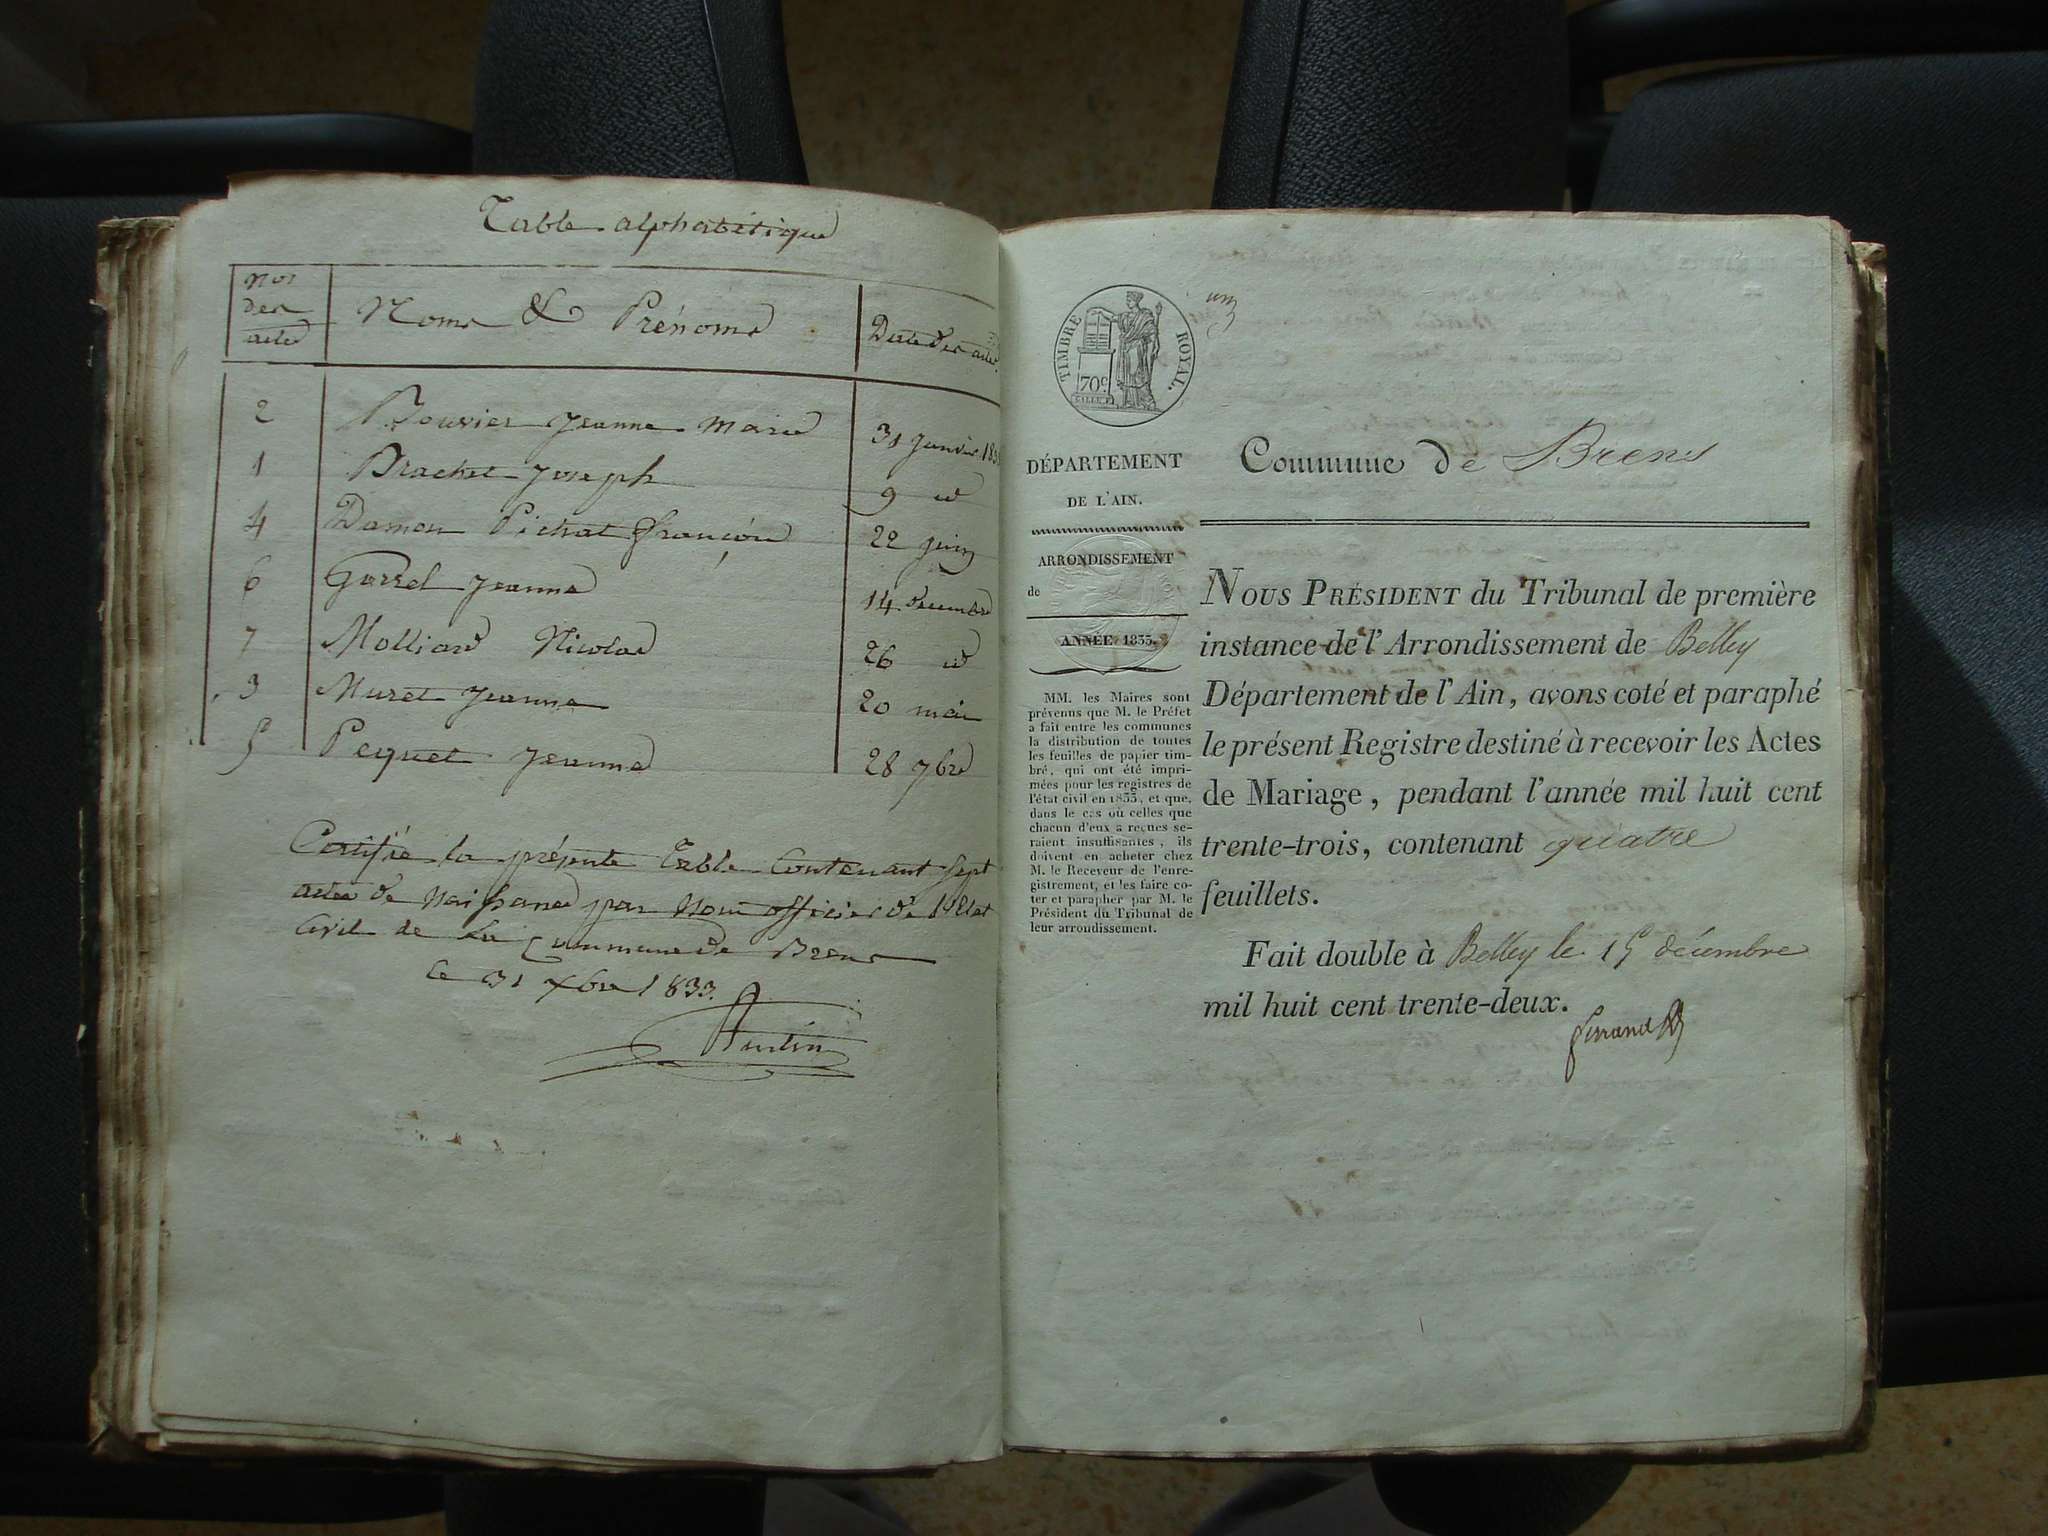 Table alphabétique
Nos
des
actes
Noms & Prénoms
Date des actes
2 Bouvier Jeanne Marie 31 Janvier 183
1 Brachet Joseph 9 id
4 Damon Pichat François 22 juin
6 Gorrel Jeanne 14 décembre
7 Molliard Nicolas 26 id
3 Muret Jeanne 20 mai
5 Pequet Jeanne 28 7bre
Certifié la présente Table Contenant Sept
actes de Naissance par Nous officier de l'Etat
Civil de La Commune de Brens
le 31 xbre 1833.
TIMBRE ROYAL.
70c
DÉPARTEMENT
DE L'AIN.
ARRONDISSEMENT
de
ANNÉE 1833.
MM. les Maires sont
prévenus que M. le Préfet
a fait entre les communes
la distribution de toutes
les feuilles de papier tim-
bré, qui ont été impri-
mées pour les registres de
l'état civil en 1833, et que,
dans le cas où celles que
chacun d'eux a reçues se-
raient insuffisantes, ils
doivent en acheter chez
M. le Receveur de l'enre-
gistrement, et les faire co-
ter et parapher par M. le
Président du Tribunal de
leur arrondissement.
Commune de Brens
NOUS PRÉSIDENT du Tribunal de première
instance de l'Arrondissement de Belley
Département de l'Ain, avons coté et paraphé
le présent Registre destiné à recevoir les Actes
de Mariage, pendant l'année mil huit cent
trente-trois, contenant quatre
feuillets.
Fait double à Belley le 15 décembre
mil huit cent trente-deux.